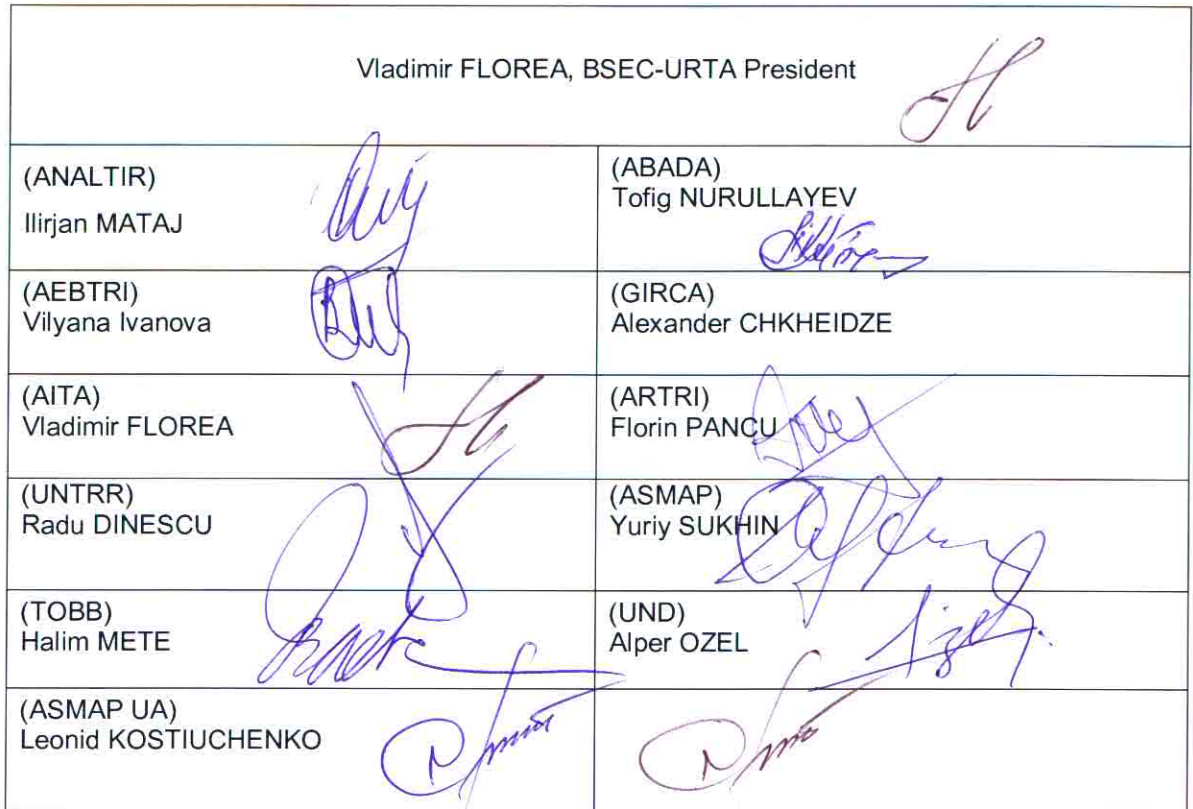 Vladimir FLOREA, BSEC-URTA President
(ANALTIR)
Ilirjan MATAJ
(ABADA)
Tofig NURULLAYEV
(AEBTRI)
Vilyana Ivanova
(GIRCA)
Alexander CHKHEIDZE
(AITA)
Vladimir FLOREA
(ARTRI)
Florin PANCU
(UNTRR)
Radu DINESCU
(ASMAP)
Yuriy SUKHIN
(TOBB)
Halim METE
(UND)
Alper OZEL
(ASMAP UA)
Leonid KOSTIUCHENKO